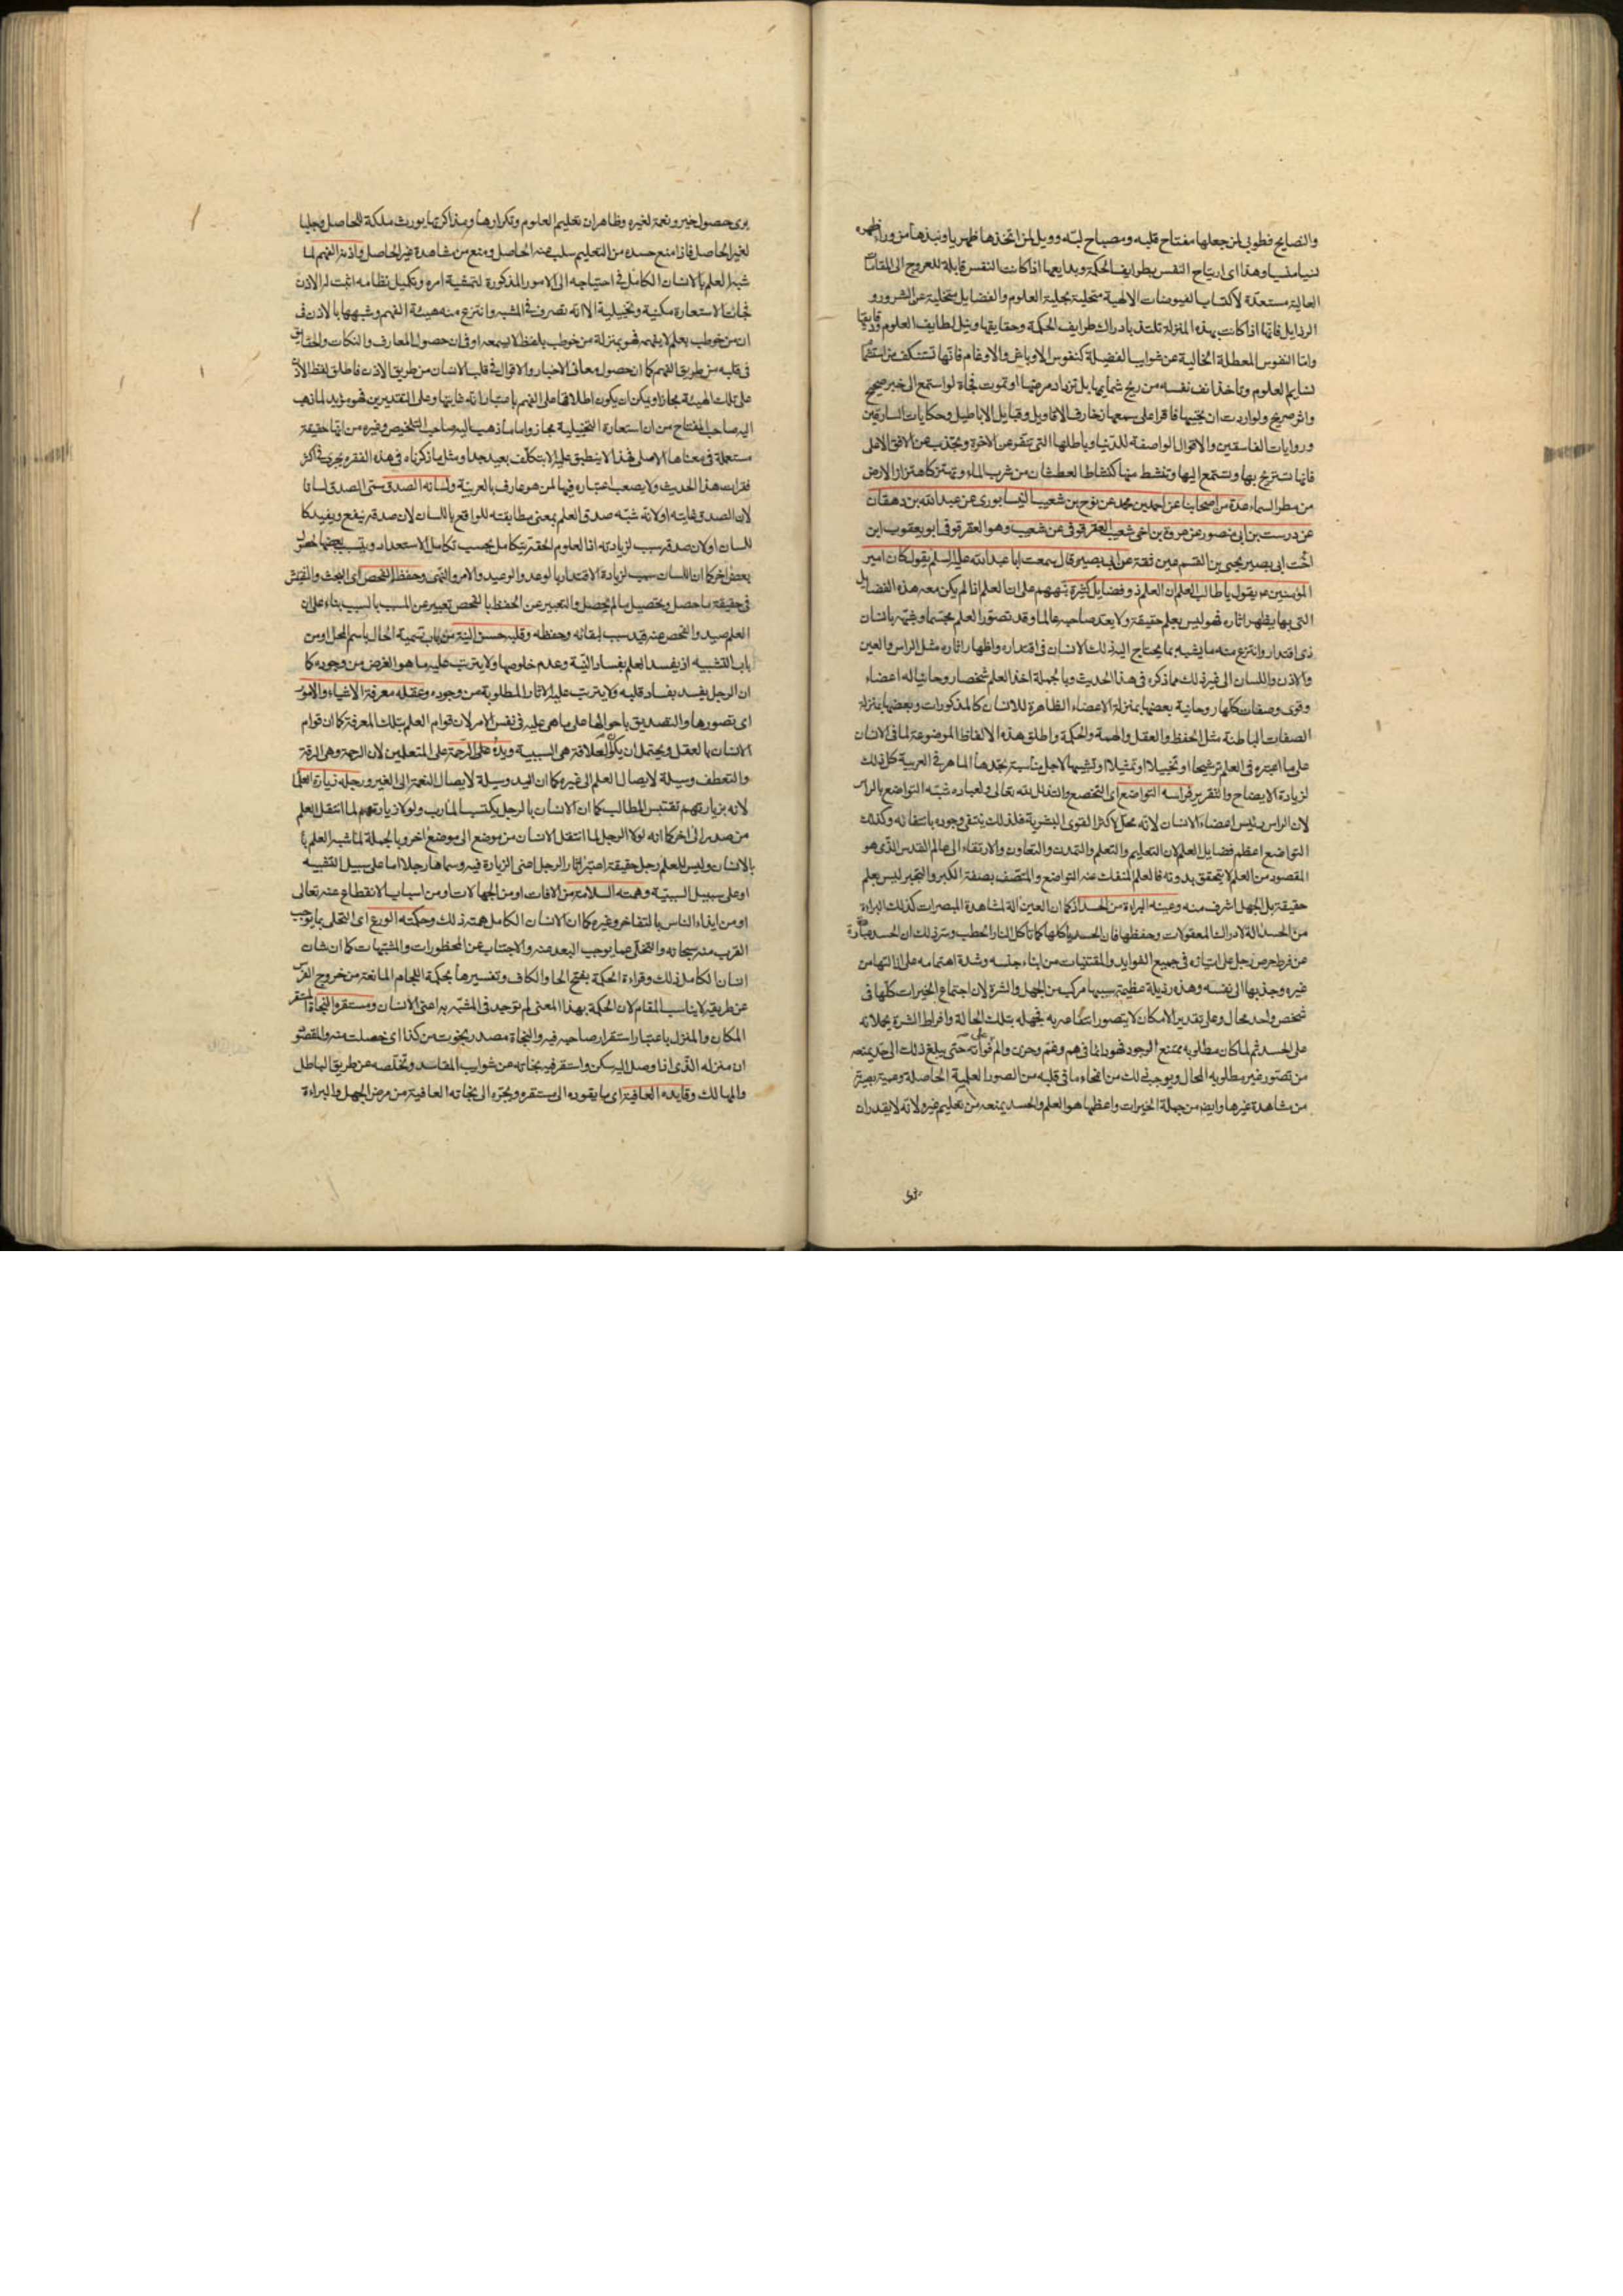 والنصايح فطوبى لمن جعلها مفتاح قلبه ومصباح لبّه وويل لمن اتخذها ظهريا ونبذها من وراء ظهره
نسيا منسيا وهذا اى ارتياح النفس بطرايف الحكمة وبدايعها اذا كانت النفس قابلة للعروج الى المقامات
العالية مستعدّة لاكتساب الفيوضات الالهية متحلية بحلية العلوم والفضايل متخلية عن الشرور و
الرذايل فانّها اذا كانت بهذه المنزلة تلتذ بادراك طرايف الحكمة وحقايقها ونيل لطايف العلوم ودقايقها
وامّا النفوس المعطلة الخالية عن شوايب الفضيلة كنفوس الاوباش والاوغام فانّها تستنكف من استشمام
نسايم العلوم وتاخذ انف نفسه من ريح شمايمها بل تزداد مرضها او تموت فجأة لو استمع الى خبر صحيح
واثر صريح ولو اردت ان تحييها فاقرا على سمعها زخارف الاقاويل وقبايل الاباطيل وحكايات السارقين
وروايات الفاسقين والاقوال الواصفة للدّنيا وباطلها التى تنفّر عن الاخرة وتجذب عن الافق الاعلى
فانها تستريح بها وتستمع اليها وتنشط منها كنشاط العطشان من شرب الماء وتهتز كاهتزاز الارض
من مطر السماء عدة من اصحابنا عن احمد بن محمد عن نوح بن شعيب النيسابورى عن عبد الله بن دهقان
عن درست بن ابى منصور عن عروة بن اخى شعيب العقرقوفى عن شعيب وهو العقرقوفى ابو يعقوب ابن
اخت ابى بصير يحيى بن القسم عين ثقة عن ابى بصير قال سمعت ابا عبد الله عليه السلم يقول كان امير
المؤمنين ع يقول يا طالب العلم ان العلم ذو فضايل كثيرة نبّههم على ان العلم اذا لم يكن معه هذه الفضايل
التى بها يظهر اثاره فهو ليس بعلم حقيقة ولا يعدّ صاحبه عالما وقد تصوّر العلم مجسّما وشبّهه بانسان
ذى اقتدار وانتزع منه ما يشبه بما يحتاج اليه ذلك الانسان فى اقتداره واظهار اثاره مثل الراس والعين
والاذن واللسان الى غير ذلك مما ذكره فى هذا الحديث وبالجملة اخذ العلم شخصا روحانيا له اعضاء
وقوى وصفات كلّها روحانية بعضها بمنزلة الاعضاء الظاهرة للانسان كالمذكورات وبعضها بمنزلة
الصفات الباطنة مثل الحفظ والعقل والهمة والحكمة واطلق هذه الالفاظ الموضوعة لما فى الانسان
على ما اعتبره فى العلم ترشيحا او تخييلا او تمثيلا او تشبيها لاجل مناسبة يجدها الماهر فى العربية كل ذلك
لزيادة الايضاح والتقرير فراسه التواضع اى التخضع والتذلل لله تعالى ولعباده شبّه التواضع بالراس
لان الراس رئيس اعضاء الانسان لانّه محلّ لاكثر القوى البشرية فلذلك ينتفى وجوده بانتفائه وكذلك
التواضع اعظم فضايل العلم لان التعليم والتعلم والتمدن والتعاون والارتقاء الى عالم القدس الذى هو
المقصود من العلم لا يتحقق بدونه فالعلم المنفك عنه التواضع والمتصف بصفة الكبر والتجبر ليس بعلم
حقيقة بل الجهل اشرف منه وعينه البراءة من الحسد اذ كما ان العين الة لمشاهدة المبصرات كذلك البراءة
من الحسد الة لادراك المعقولات وحفظها فان الحسد ياكلها كما تاكل النار الحطب وسرّ ذلك ان الحسد عبارة
عن فرط حرص رجل على امتيازه فى جميع الفوايد والمقتنيات من ابناء جنسه وشدة اهتمامه على ازالتها من
غيره وجذبها الى نفسه وهذه رذيلة عظيمة سببها مركب من الجهل والشره لان اجتماع الخيرات كلّها فى
شخص واحد محال وعلى تقدير الامكان لا يتصور انتفاعه به فجهله بتلك الحالة وافراط الشره يحملانه
على الحسد ثم لما كان مطلوبه ممتنع الوجود فهو دائما فى هم وغم وحزن والم على فواته حتى يبلغ ذلك الى حدّ يمنعه
من تصوّر غير مطلوبه المحال ويوجب ذلك من انمحاء ما فى قلبه من الصور العلمية الحاصلة وعمية بصيرته
من مشاهدة غيرها وايضا من جملة الخيرات واعظمها هو العلم والحسد يمنعه من تعليم غيره لانّه لا يقدر ان
يرى
يرى حصول خير ونعمة لغيره وظاهر ان تعليم العلوم وتكرارها ومذاكرتها يورث ملكة للحاصل وجليا
لغير الحاصل فاذا منع حسده من التعليم سلب عنه الحاصل ومنع من مشاهدة غير الحاصل واذنه الفهم لما
شبه العلم بالانسان الكامل فى احتياجه الى الامور المذكورة لتمشية امره وتكميل نظامه اثبت له الاذن
فجاءت الاستعارة مكنية وتخييلية الا انه تصرف فى المشبه وانتزع منه هيئة الفهم وشبهها بالاذن فى
ان من خوطب بعلم لا يفهمه فهو بمنزلة من خوطب بلفظ لا يسمعه او فى ان حصول المعارف والنكات والحقايق
فى قلبه من طريق الفهم كما ان حصول معانى الاخبار والاقوال فى قلب الانسان من طريق الاذن فاطلق لفظ الاذن
على تلك الهيئة مجازا ويمكن ان يكون اطلاقها على الفهم باعتبار انّه غايتها وعلى التقديرين فهو مؤيد لما ذهب
اليه صاحب المفتاح من ان استعارة التخييلية مجاز واما ما ذهب اليه صاحب التلخيص وغيره من انّها حقيقة
مستعملة فى معناها الاصلى فهذا لا ينطبق عليه الا بتكلّف بعيد جدا ومثل ما ذكرناه فى هذه الفقره يجرى فى اكثر
فقرات هذا الحديث ولا يصعب اعتباره فيها لمن هو عارف بالعربيّة ولسانه الصدق سمّى الصدق لسانا
لان الصدق غايته او لانه شبّه صدق العلم بمعنى مطابقته للواقع باللسان لان صدقه ينفع ويفيد كا
للسان او لان صدقه سبب لزيادته اذ العلوم الحقة يتكامل بحسب تكامل الاستعداد ويتسبب بعضها لحصول
بعض اخر كما ان اللسان سبب لزيادة الاقتدار بالوعد والوعيد والامر والنهى وحفظه الفحص اى البحث والتفتيش
فى حقيقة ما حصل وتحصيل ما لم يحصل والتعبير عن الحفظ بالفحص تعبير عن المسبب بالسبب بناء على ان
العلم صيد والفحص عنه قيد سبب لبقائه وحفظه وقلبه حسن النية من باب تسمية الحال باسم المحل او من
باب التشبيه اذ يفسد العلم بفساد النيّة وعدم خلوصها ولا يترتب عليه ما هو الغرض من وجوده كا
ان الرجل يفسد بفساد قلبه ولا يترتب عليه الاثار المطلوبة من وجوده وعقله معرفة الاشياء والامور
اى تصورها والتصديق باحوالها على ما هى عليه فى نفس الامر لان قوام العلم بتلك المعرفة كما ان قوام
الانسان بالعقل ويحتمل ان يكون العلاقة هى السببية ويده الرحمة على المتعلمين لان الرحمة وهى الرقة
والتعطف وسيلة لايصال العلم الى غيره كما ان اليد وسيلة لايصال النعمة الى الغير ورجله زيارة العلما
لانه بزيارتهم تقتبس المطالب كما ان الانسان بالرجل يكتسب المارب ولولا زيارتهم لما انتقل العلم
من صدر الى اخر كما انه لولا الرجل لما انتقل الانسان من موضع الى موضع اخر وبالجملة لما شبه العلم با
بالانسان وليس للعلم رجل حقيقة اعتبر اثار الرجل اعنى الزيارة فيه وسماها رجلا اما على سبيل التشبيه
او على سبيل السببيّة وهمته السلامة من الافات او من الجهالات ومن اسباب الانقطاع عنه تعالى
او من ايذاء الناس بالتفاخر وغيره كما ان الانسان الكامل همته ذلك وحكمته الورع اى التحلى بما يوجب
القرب منه سبحانه والتخلّى عما يوجب البعد عنه والاجتناب عن المحظورات والمشتبهات كما ان شان
انسان الكامل ذلك وقراءة الحكمة بفتح الحاء والكاف وتفسيرها بحكمة اللجام المانعة من خروج الفرس
عن طريقه لا يناسب المقام لان الحكمة بهذا المعنى لم توجد فى المشبّه به اعنى الانسان ومستقره النجاة المستقر
المكان والمنزل باعتبار استقرار صاحبه فيه والنجاة مصدر نجوت من كذا اى خلصت منه والمقصود
ان منزله الذى اذا وصل اليه سكن واستقر فيه نجاته عن شوايب المفاسد وتخلّصه عن طريق الباطل
والمهالك وقايده العافية اى ما يقوده الى مستقره ويجرّه الى نجاته العافية من مرض الجهل والبراءة